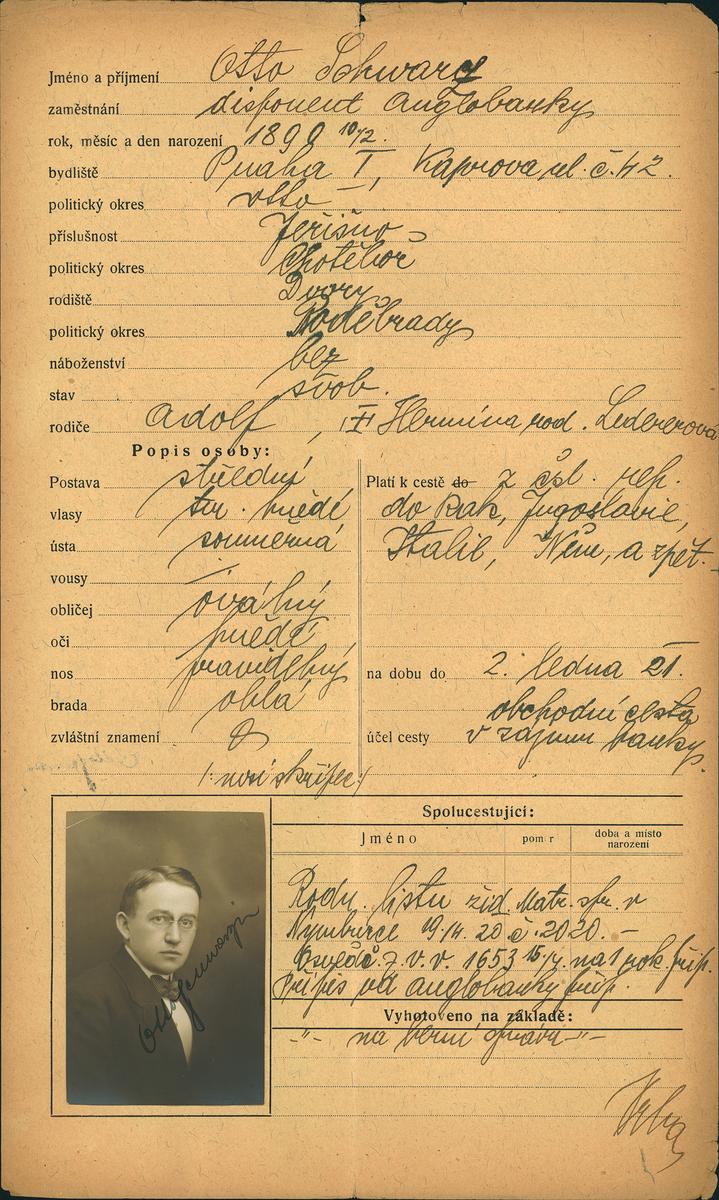 Jméno a příjmení Otto Schwarz
zaměstnání disponent Anglobanky
rok, měsíc a den narození 1890 10/2.
bydliště Praha I, Kaprova ul. č. 42.
politický okres dtto –
příslušnost Jeřišno
politický okres Chotěboř
rodiště Dvory
politický okres Poděbrady
náboženství bez
stav svob.
rodiče Adolf, Hermína rod. Ledererová
Popis osoby:
Postava střední
vlasy tm. hnědé
ústa souměrná
vousy –
obličej oválný
oči hnědé
nos pravidelný
brada oblá
zvláštní znamení
/: nosí skřipec :/
Platí k cestě do z čsl. rep.
do Rak, Jugoslavie,
Italie, Něm, a zpět. –
na dobu do 2. ledna 21.
obchodní cesta
účel cesty v zájmu banky.
Spolucestující:
Jméno poměr doba a místo
narození
Rodn. listu žid. Matr. spr. v
Nymburce 19./4. 20 č. 2020. –
Osvědč. z. v. v. 1653 15/4. na 1 rok příp.
Přípis od Anglobanky příp.
Vyhotoveno na základě:
–"– na berní správu –"–
Otto Schwarz